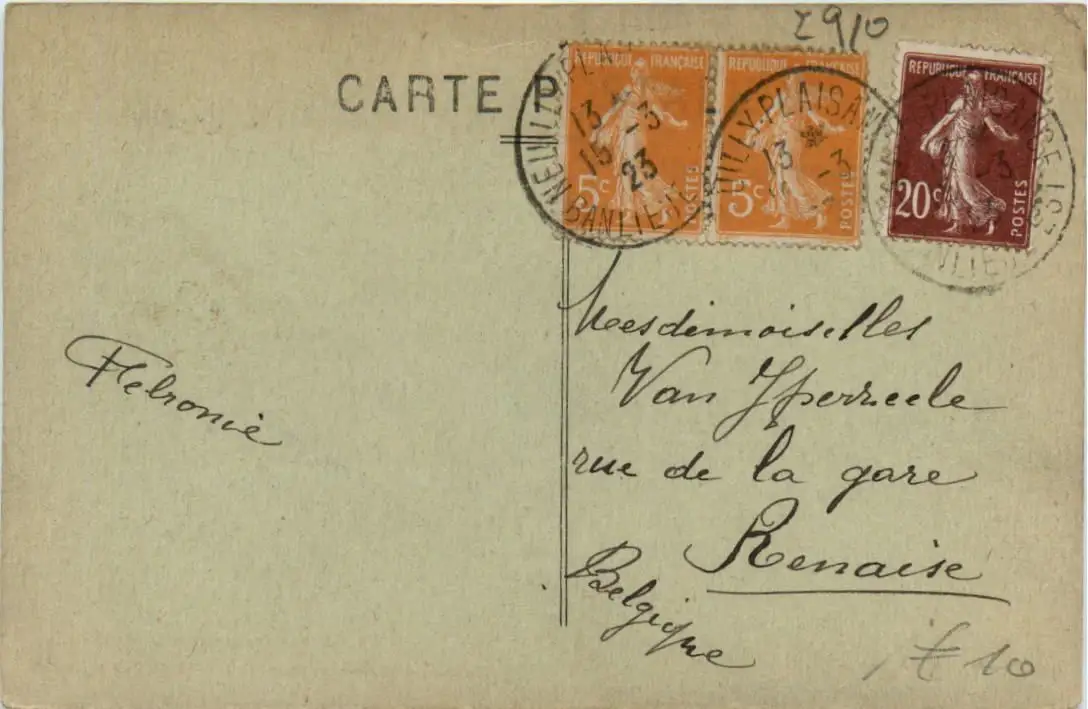 2910
CARTE P
REPUBLIQUE FRANÇAISE
5c POSTES
REPUBLIQUE FRANÇAISE
5c POSTES
REPUBLIQUE FRANÇAISE
20c POSTES
NEUILLY-PLAI
13 -3
15 23
BANLIEUE
ILLY-PLAISAN
13 -3
Mesdemoiselles
Van
rue de la gare
Renaise
Belgique
10